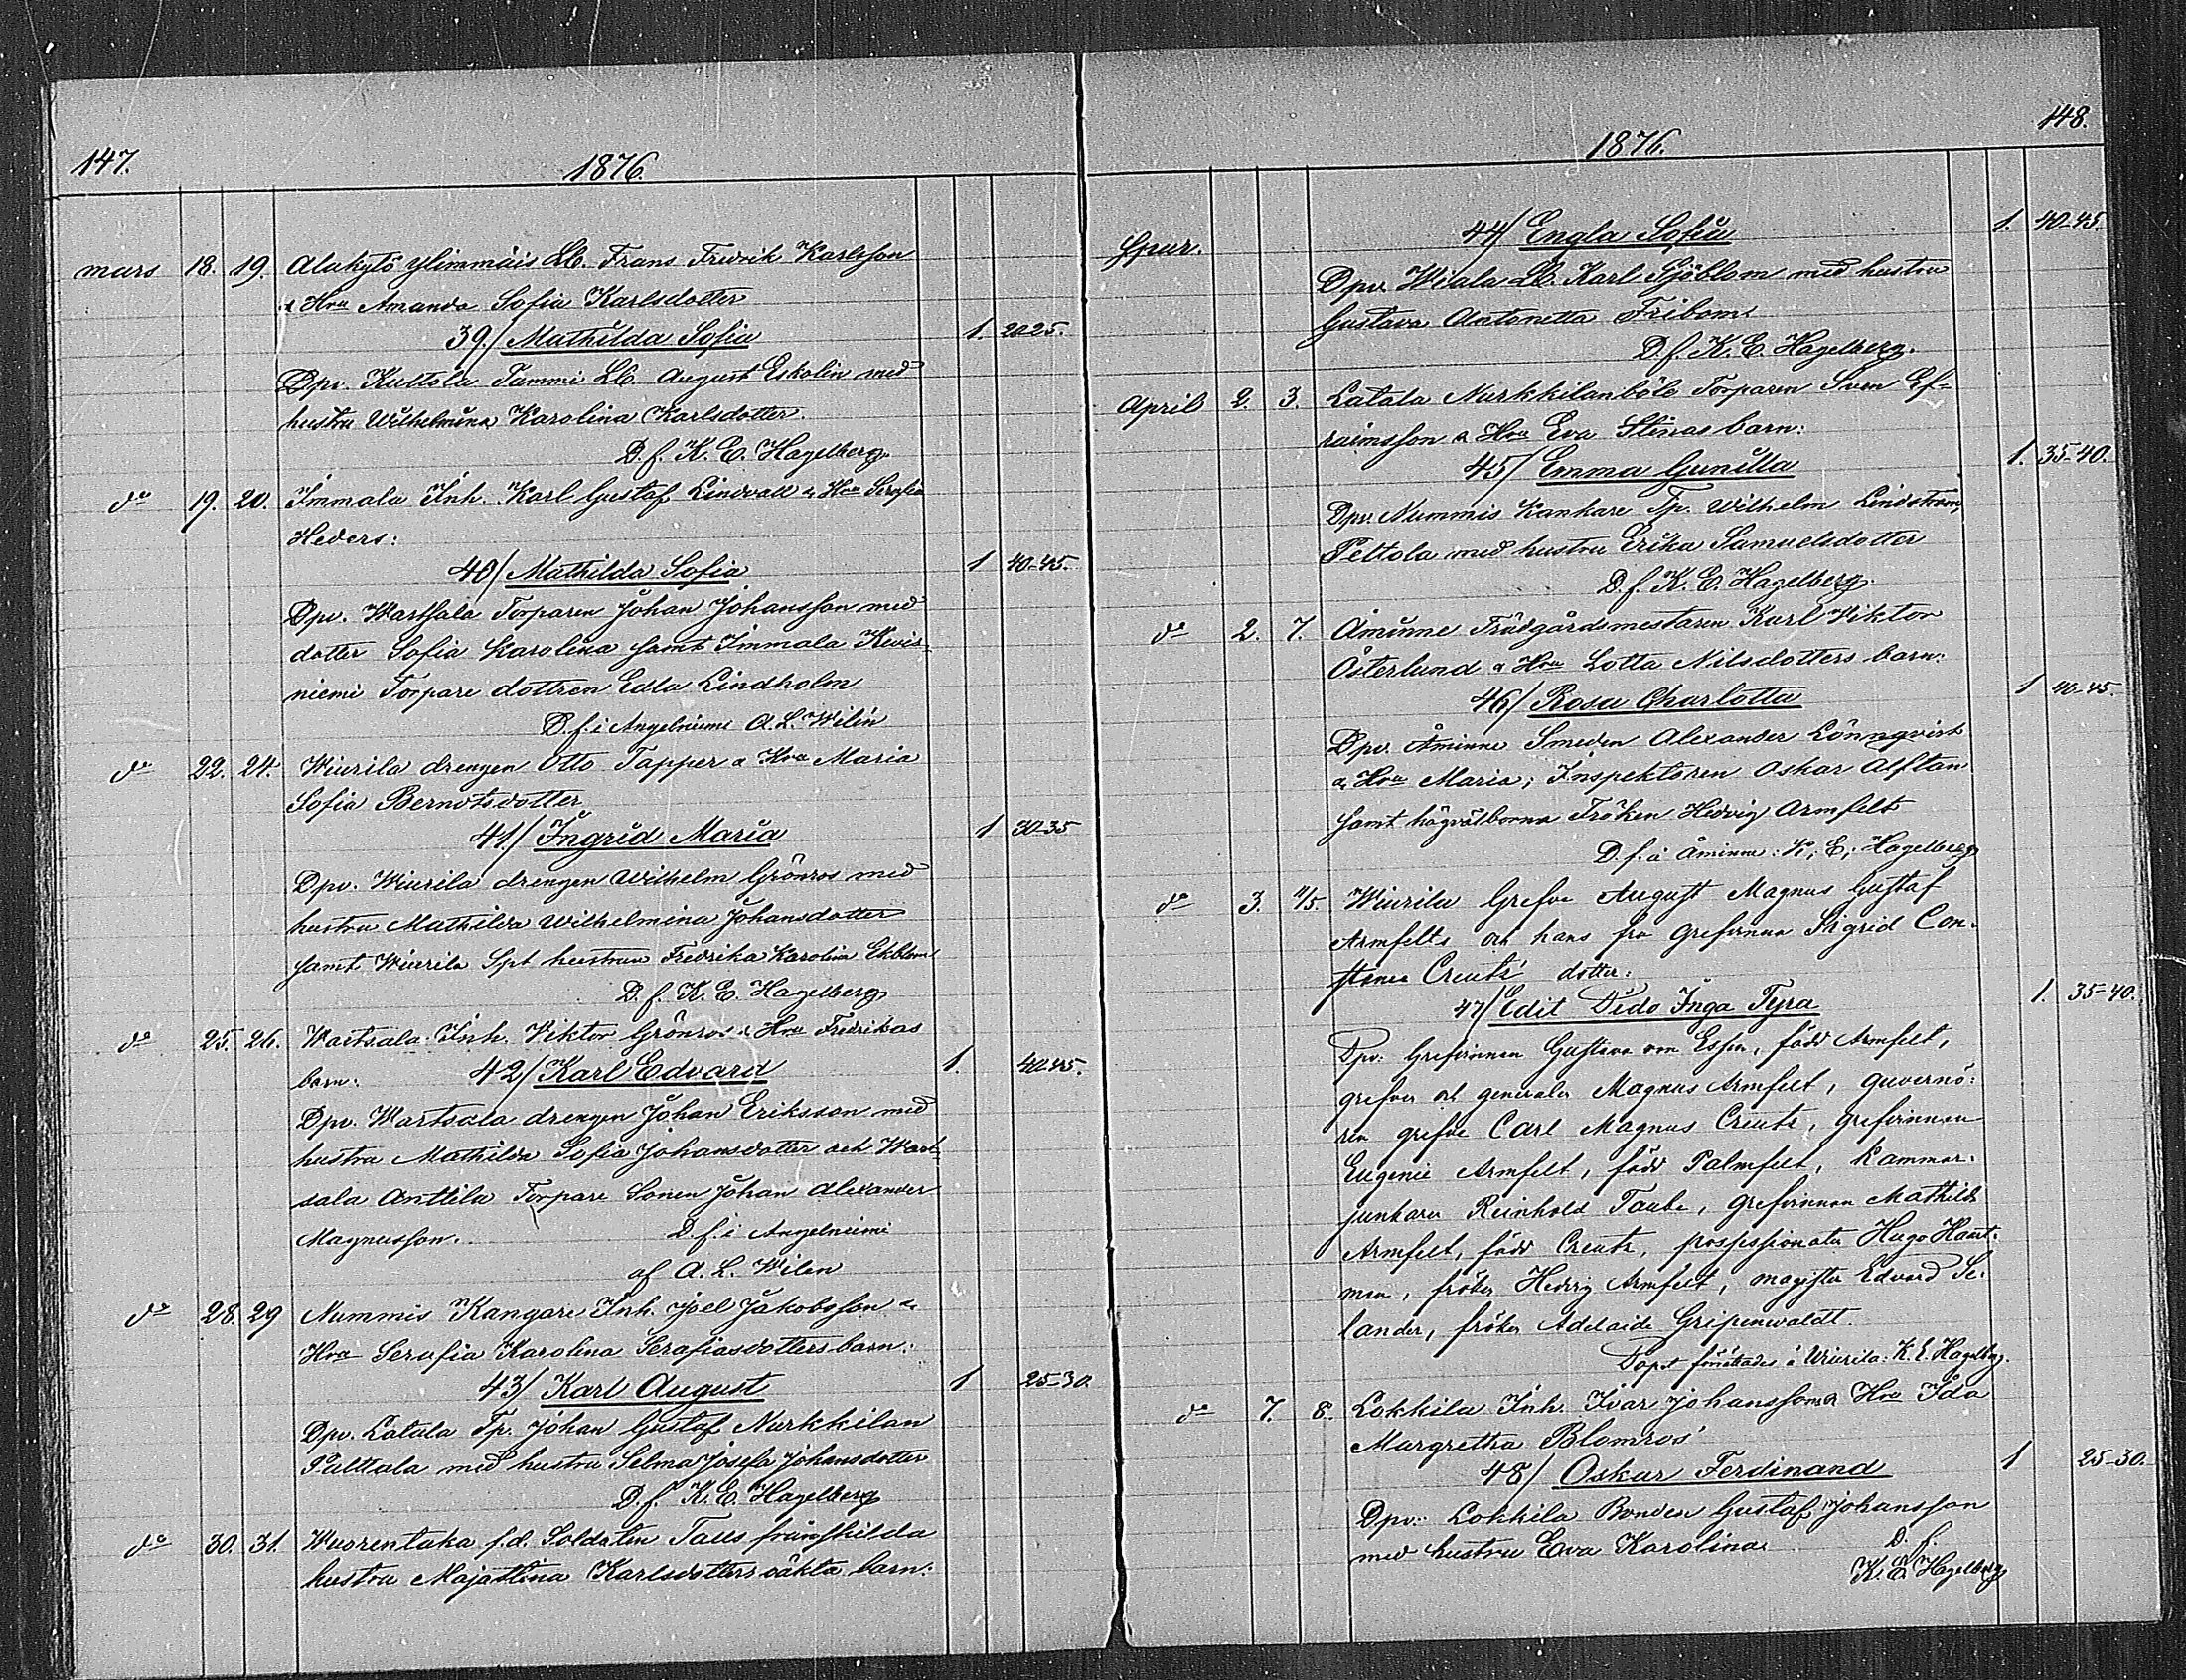 147.
1876.
mars 18. 19. Alakytö Ylimmäis Lb. Frans Fredrik Karlsson
& Hru Amanda Sofia Karlsdotter
39./ Mathilda Sofia 1. 20-25.
Dpv. Kultola Tammi Lb. August Eskolin med
hustru Wilhelmina Karolina Karlsdotter.
D. f. K. E. Hagelberg.
do 19. 20. Immala Inh. Karl Gustaf Lindvall & Hru Serafia
Heders:
40/ Mathilda Sofia 1 40-45.
Dpv. Wartsala Torparen Johan Johansson med
dotter Sofia Karolina samt Immala Kivis-
niemi Torpare dottren Edla Lindholm
D. f. i Angelniemi A. L. Wilén
do 22. 24. Wiurila drengen Otto Tapper & Hru Maria
Sofia Berndtsdotter
41/ Ingrid Maria 1 30-35
Dpv. Wiurila drengen Wilhelm Grönros med
hustru Mathilda Wilhelmina Johansdotter
samt Wiurila Spt hustrun Fredrika Karolina Ekblom
D. f. K. E. Hagelberg
do 25. 26. Wartsala Inh. Viktor Grönros & Hru Fredrikas
barn: 42/ Karl Edvard 1. 40-45.
Dpv. Wartsala drengen Johan Eriksson med
hustru Mathilda Sofia Johansdotter och Wart-
sala Anttila Torpare Sonen Johan Alexander
Magnusson. D. f. i Angelniemi
af A. L. Wilen
do 28. 29 Nummis Kangare Inh. Joel Jakobsson &
Hru Serafia Karolina Serafiasdotters barn:
43/ Karl August 1 25-30.
Dpv. Latala Tp. Johan Gustaf Nurkkilan
Pulttala med hustru Selma Josefa Johansdotter
D. f. K. E. Hagelberg
do 30. 31. Wuorentaka f.d. Soldaten Talls frånskilda
hustru Majastina Karlsdotters oäkta barn:
148.
1876.
Spur. 44/ Engla Sofia 1. 40-45.
Dpv. Wiala Lb. Karl Sjöblom med hustru
Gustava Antonetta Fribom
D. f. K. E. Hagelberg.
April 2. 3. Latala Nurkkilanböle Torparen Sven Ef-
raimsson & Hru Eva Stinas barn:
45/ Emma Gunilla 1. 35-40.
Dpv. Nummis Kankare Tp. Wilhelm Lindström,
Peltola med hustru Erika Samuelsdotter
D. f. K. E. Hagelberg.
do 2. 7. Åminne Trädgårdsmestaren Karl Viktor
Österlund & Hru Lotta Nilsdotters barn:
46/ Rosa Charlotta 1 40-45.
Dpv. Åminne Smeden Alexander Lönnqvist
& Hru Maria; Inspektoren Oskar Alftan
samt högvälborna Fröken Hedvig Armfelt
D. f. å Åminne: K; E; Hagelberg
do 3. 4/5. Wiurila Grefve August Magnus Gustaf
Armfelts och hans fru Grefvinnan Sigrid Con-
stance Creutz' dotter:
47/ Edit Dido Inga Tyra 1. 35-40.
Dpv: Grefvinnan Gustava von Essen, född Armfelt,
grefven och generalen Magnus Armfelt, guvernö-
ren grefve Carl Magnus Creutz, grefvinnan
Eugenie Armfelt, född Palmfelt, kammar-
junkaren Reinhold Taube, grefvinnan Mathilda
Armfelt, född Creutz, possessionaten Hugo Hart-
man, fröken Hedvig Armfelt, magister Edvard Se-
lander, fröken Adelaide Gripenwaldt.
Dopet förrättades å Wiurila: K. E. Hagelberg.
do 7. 8. Lokkila Inh. Ivar Johansson & Hru Ida
Margretha Blomros'
48/ Oskar Ferdinand 1 25-30.
Dpv: Lokkila Bonden Gustaf Johansson
med hustru Eva Karolina. D. f.
K. E. Hagelberg